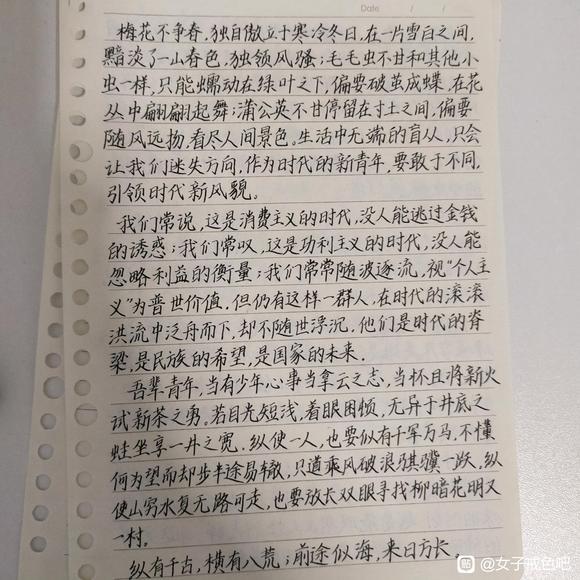 Date
梅花不争春，独自傲立于寒冷冬日，在一片雪白之间，
黯淡了一山春色，独领风骚；毛毛虫不甘和其他小
虫一样，只能蠕动在绿叶之下，偏要破茧成蝶，在花
丛中翩翩起舞；蒲公英不甘停留在寸土之间，偏要
随风远扬，看尽人间景色。生活中无端的盲从，只会
让我们迷失方向，作为时代的新青年，要敢于不同，
引领时代新风貌。
我们常说，这是消费主义的时代，没人能逃过金钱
的诱惑；我们常叹，这是功利主义的时代，没人能
忽略利益的衡量；我们常常随波逐流，视“个人主
义”为普世价值，但仍有这样一群人，在时代的滚滚
洪流中泛舟而下，却不随世浮沉，他们是时代的脊
梁，是民族的希望，是国家的未来．
吾辈青年，当有少年心事当拿云之志，当怀且将新火
试新茶之勇。若目光短浅，着眼困顿，无异于井底之
蛙坐享一井之宽．纵使一人，也要似有千军万马，不懂
何为望而却步半途易辙，只道乘风破浪骐骥一跃，纵
使山穷水复无路可走，也要放长双眼寻找柳暗花明又
一村．
纵有千古，横有八荒；前途似海，来日方长．
贴 @女子戒色吧